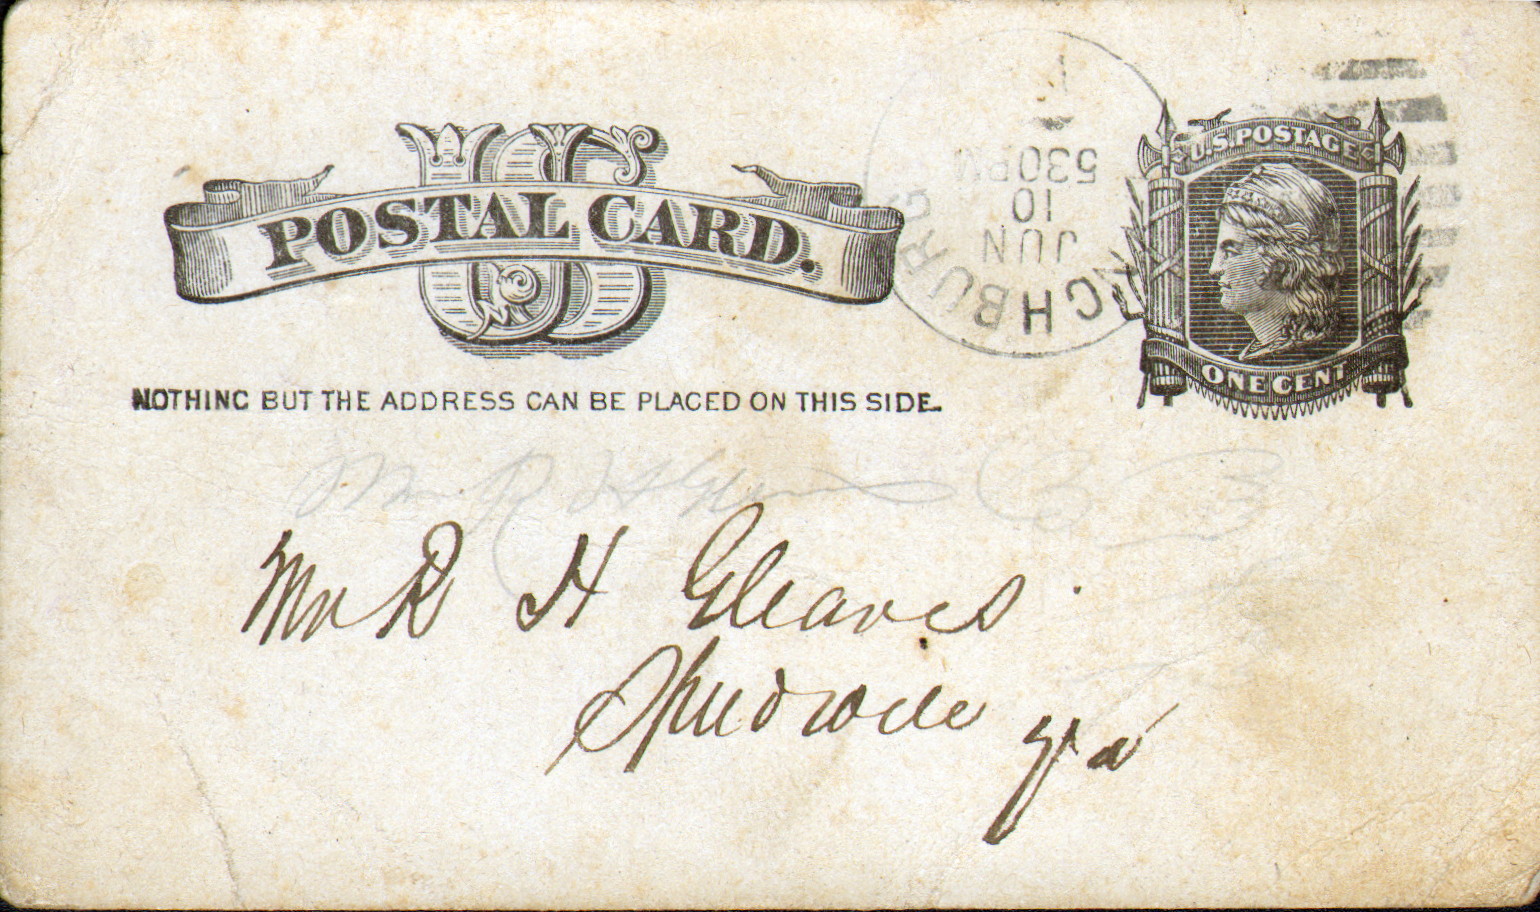 US
POSTAL CARD.
NOTHING BUT THE ADDRESS CAN BE PLACED ON THIS SIDE.
NCHBURG
JUN
10
530PM
U.S. POSTAGE
ONE CENT
Mr R H Gleaves
Mr R H Gleaves
Va